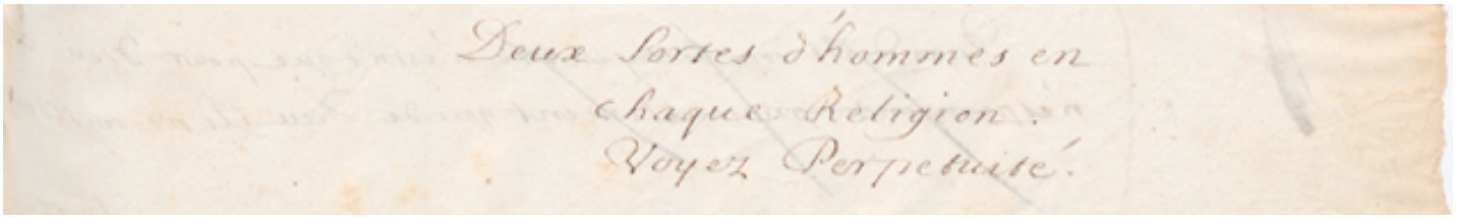 Deux sortes d'hommes en
chaque Religion.
Voyez Perpetuité.